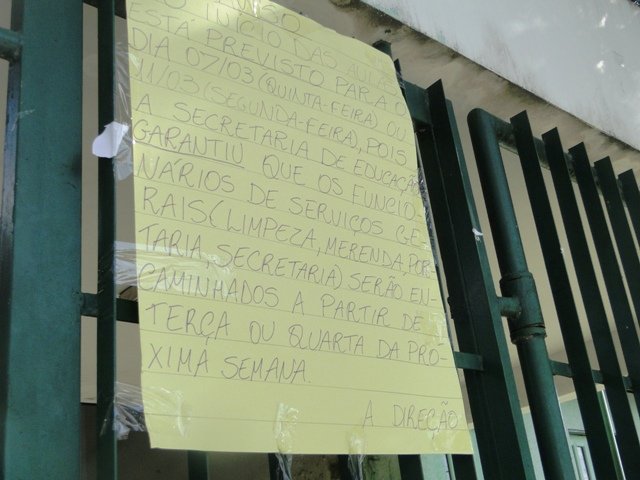 O INÍCIO DAS AULAS
ESTÁ PREVISTO PARA O
DIA 07/03 (QUINTA-FEIRA) OU
11/03 (SEGUNDA-FEIRA), POIS
A SECRETARIA DE EDUCAÇÃO
GARANTIU QUE OS FUNCIO-
NÁRIOS DE SERVIÇOS GE-
RAIS (LIMPEZA, MERENDA, POR-
TARIA SECRETARIA) SERÃO EN-
CAMINHADOS A PARTIR DE
TERÇA OU QUARTA DA PRÓ-
XIMA SEMANA.
A DIREÇÃO